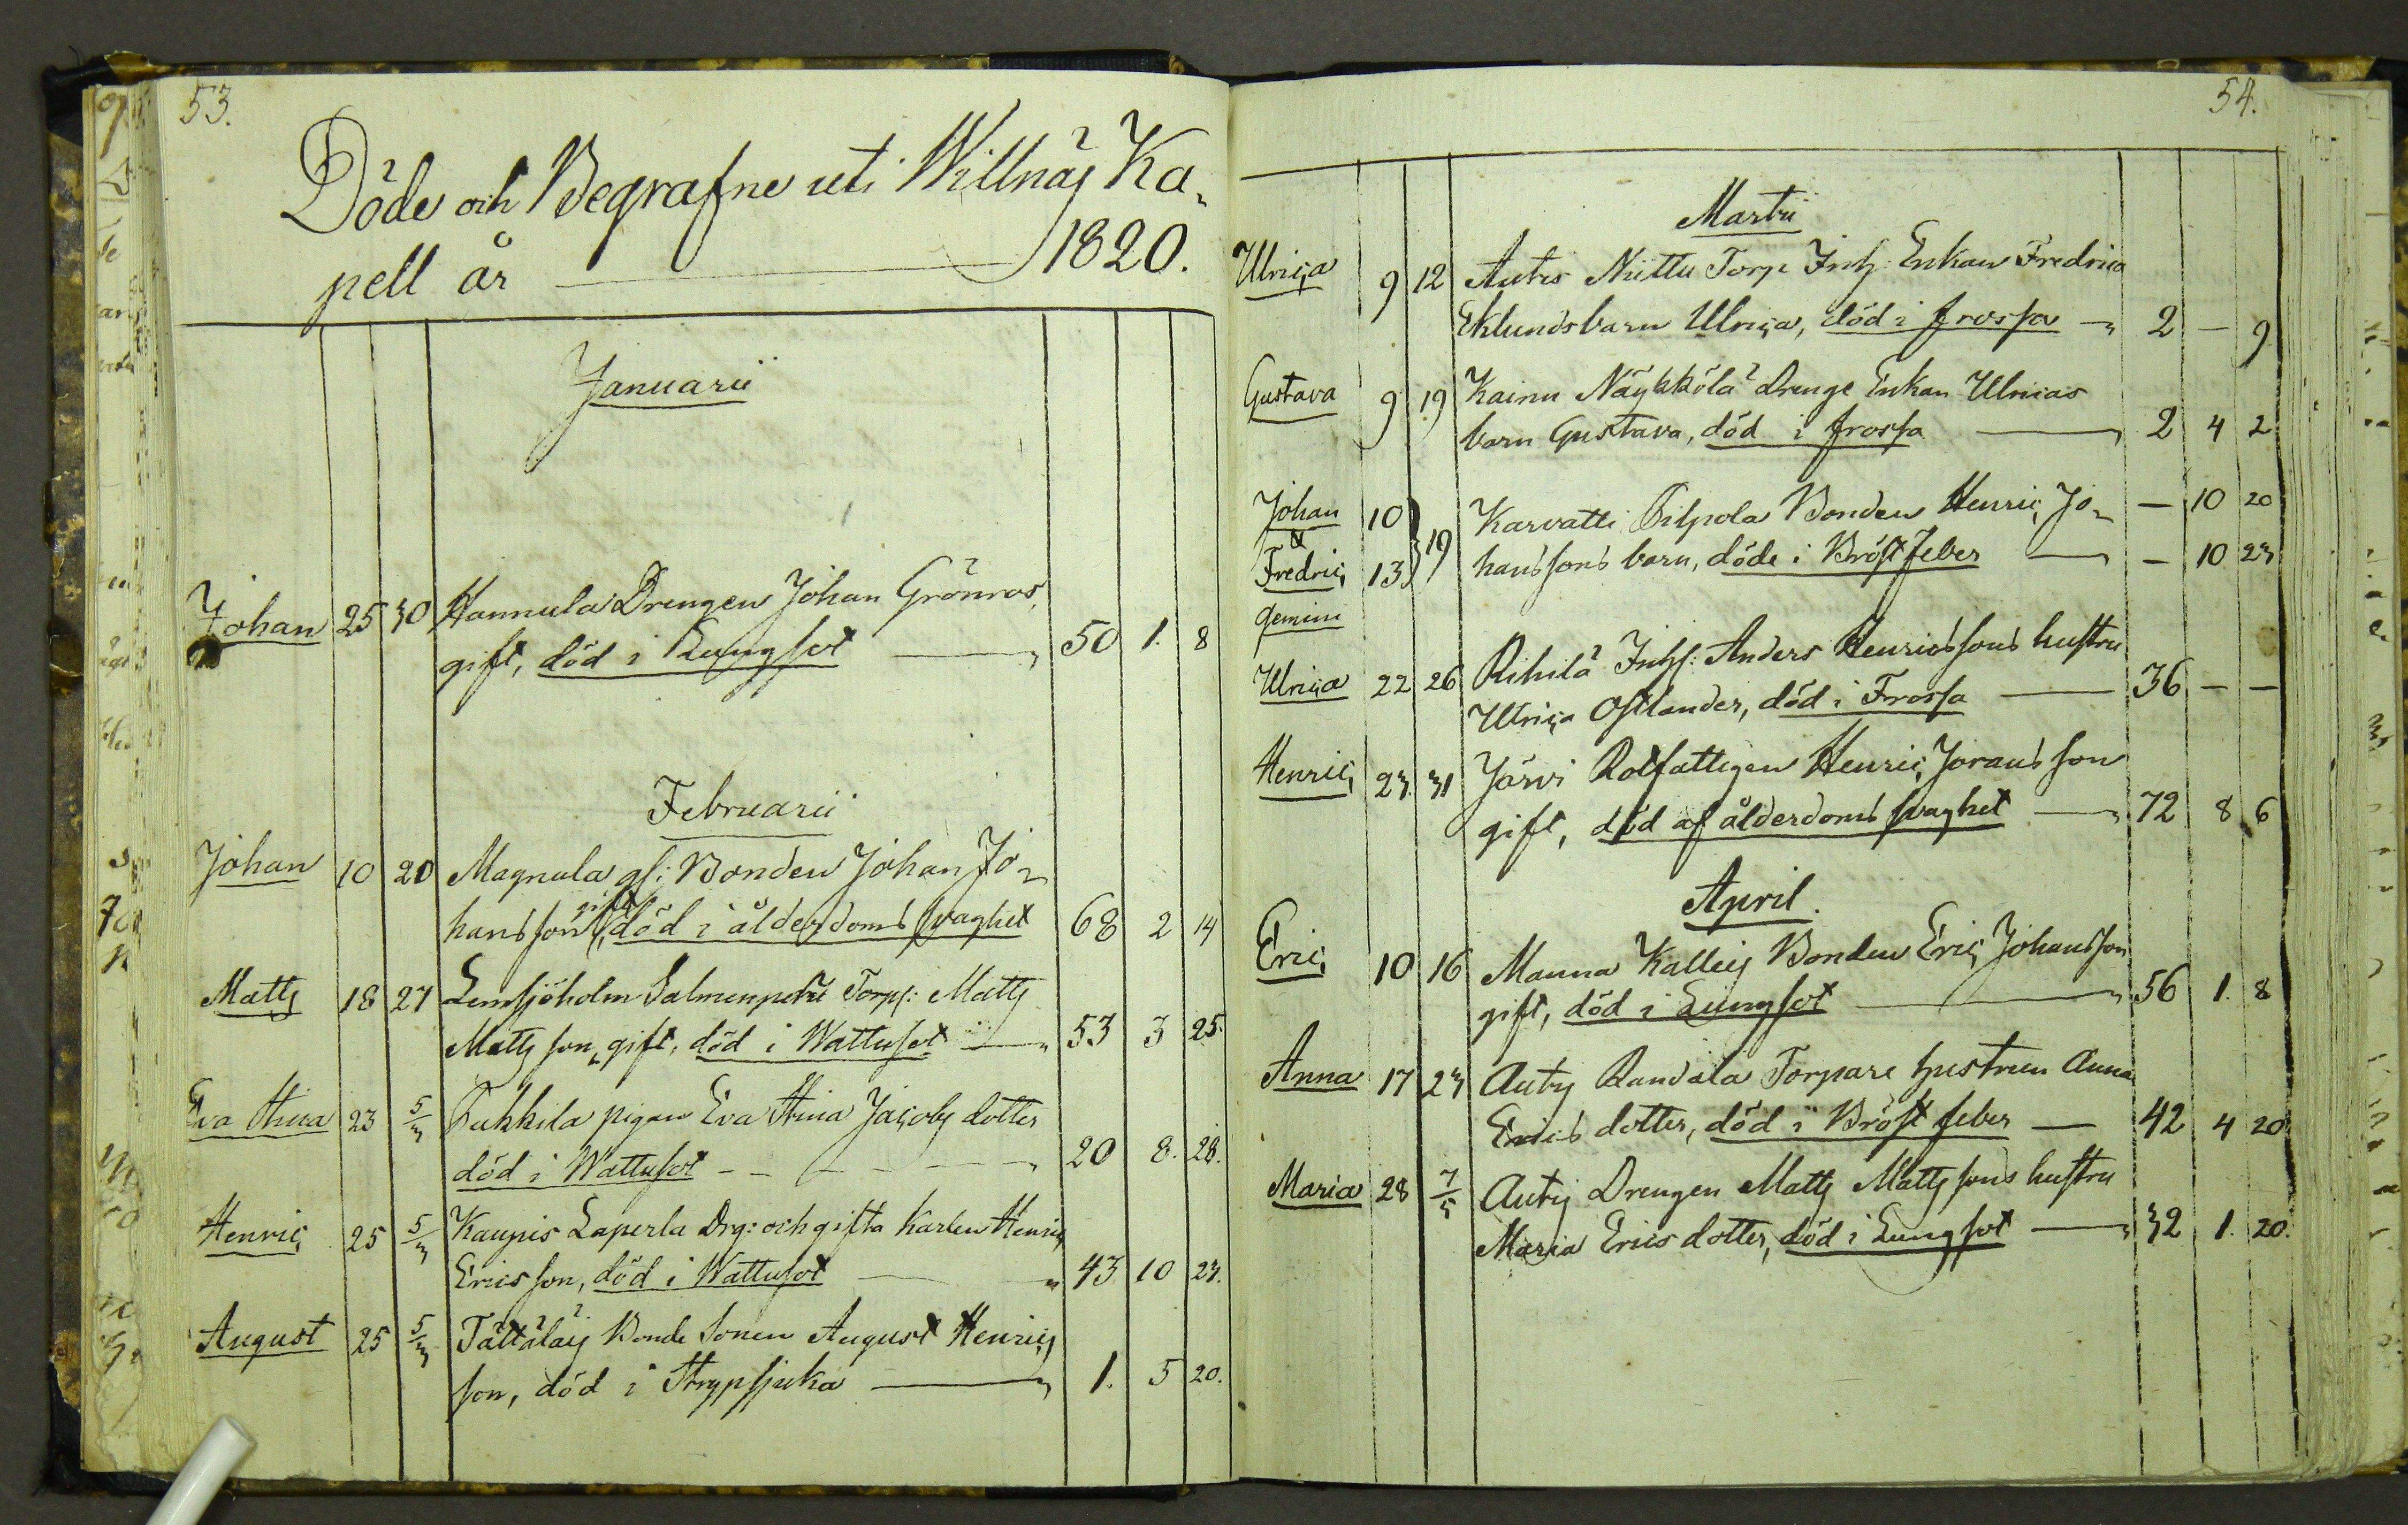 53.
Döde och Begrafne uti Willnäs Ka-
pell år 1820.
Januarii
Johan 25 30 Hannula Drengen Johan Grönroos,
gift, död i Lungsot 50 1. 8
Februarii
Johan 10 20 Magnula gl: Bonden Johan Jo-
hansson, gift, död i ålderdoms svaghet 68 2 14
Matts 18 27 Lemsjöholm Salmenperä Torp: Matts
Mattsson, gift, död i Wattusot 53 3 25.
Eva Stina 23 5/3 Pukkila pigan Eva Stina Jacobs dotter
död i Wattusot 20 8. 28.
Henric 25 5/3 Kaupis Laperla Drg: och gifta karlen Henric
Ericsson, död i Wattusot 43 10 23.
August 25 5/3 Tättäläis Bonde Sonen August Henrics
son, död i Strypsjuka 1. 5 20.
54.
Martii
Ulrica 9 12 Autis Niittu Torp Inh: Enkan Fredrica
Eklunds barn Ulrica, död i frossa 2 — 9
Gustava 9 19 Kainu Näykkölä Drenge Enkan Ulricas
barn Gustava, död i frossa 2 4 2
Johan 10 19 Karvatti Pilpola Bonden Henric Jo- — 10 20
&
Fredric 13 hanssons barn, döde i Bröstfeber — 10 23
gemini
Ulrica 22 26 Rihilä Inhs: Anders Henricssons hustru
Ulrica Ostlander, död i Frossa 36 — —
Henric 23 31 Järvi Rotfattigen Henric Joransson
gift, död af ålderdoms svaghet 72 8 6
April.
Eric 10 16 Manna Kalleis Bonden Eric Johansson
gift, död i Lungsot 56 1. 8
Anna 17 23 Autis Randala Torpare hustrun Anna
Erics dotter, död i Bröst feber 42 4 20
Maria 28 7/5 Autis Drengen Matts Mattssons hustru
Maria Erics dotter, död i Lungsot 32 1. 20.